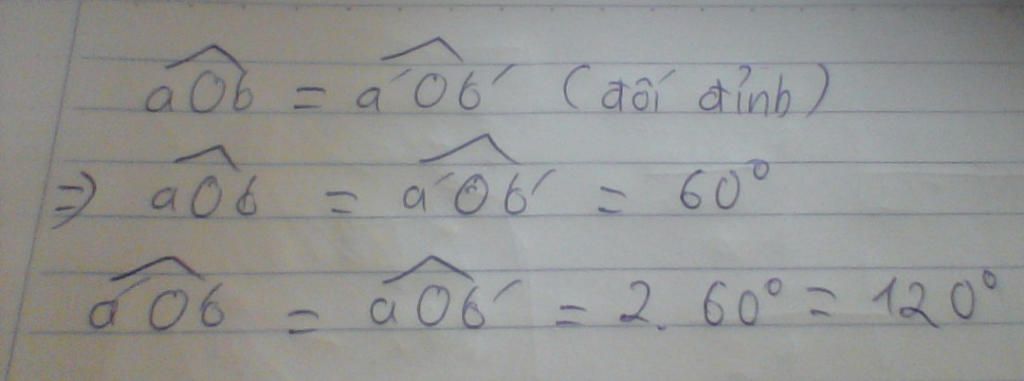 aOb = a'Ob' (đối đỉnh)
=> aOb = a'Ob' = 60°
a'Ob = aOb' = 2. 60° = 120°